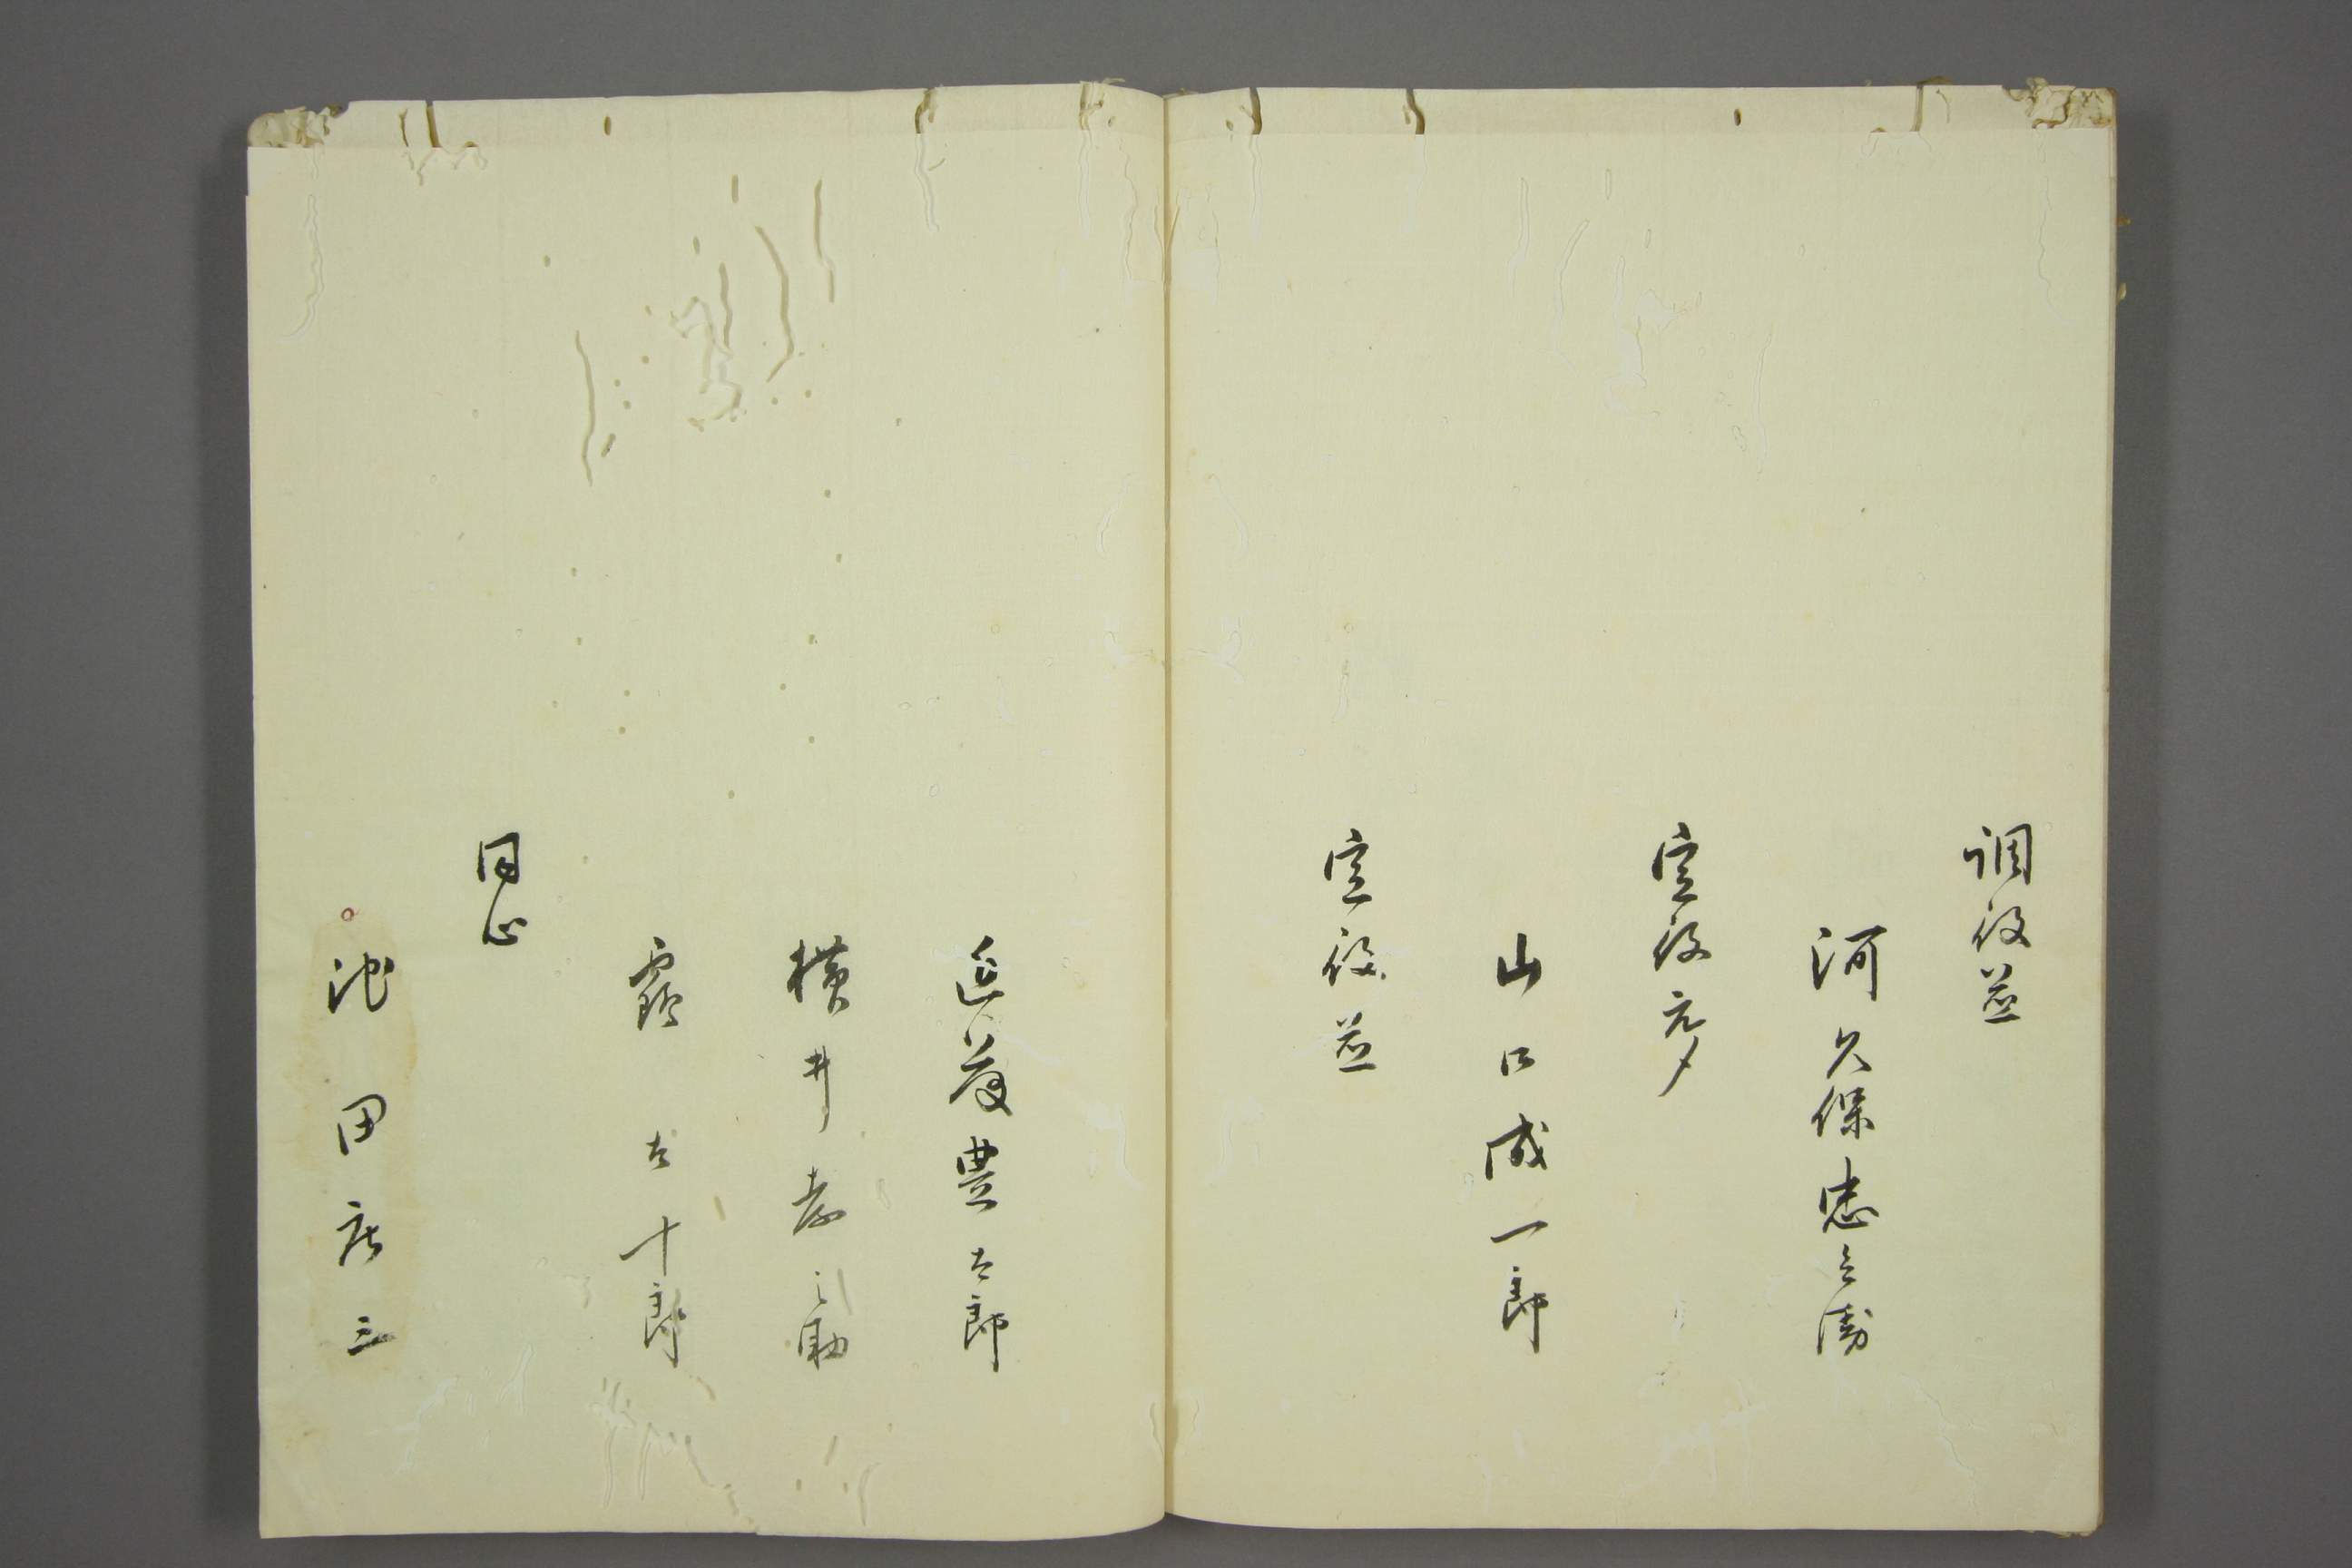 調役並
河久保忠兵衛
定役元〆
山口成一郎
定役並
近藤豊太郎
横井孝之助
露太十郎
同心
池田庄三